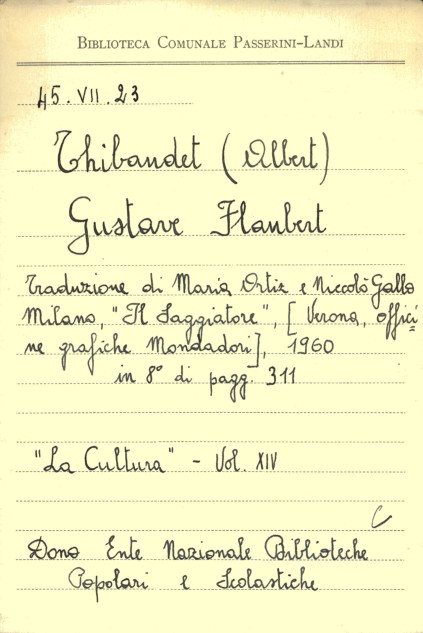 BIBLIOTECA COMUNALE PASSERINI-LANDI
45.VII.23
Thibaudet (Albert)
Gustave Flaubert
Traduzione di Maria Ortiz e Niccolò Gallo
Milano, "Il Saggiatore", [Verona, offici
ne grafiche Mondadori], 1960
in 8° di pagg. 311
"La Cultura" - Vol. XIV
C
Dono Ente Nazionale Biblioteche
Popolari e Scolastiche